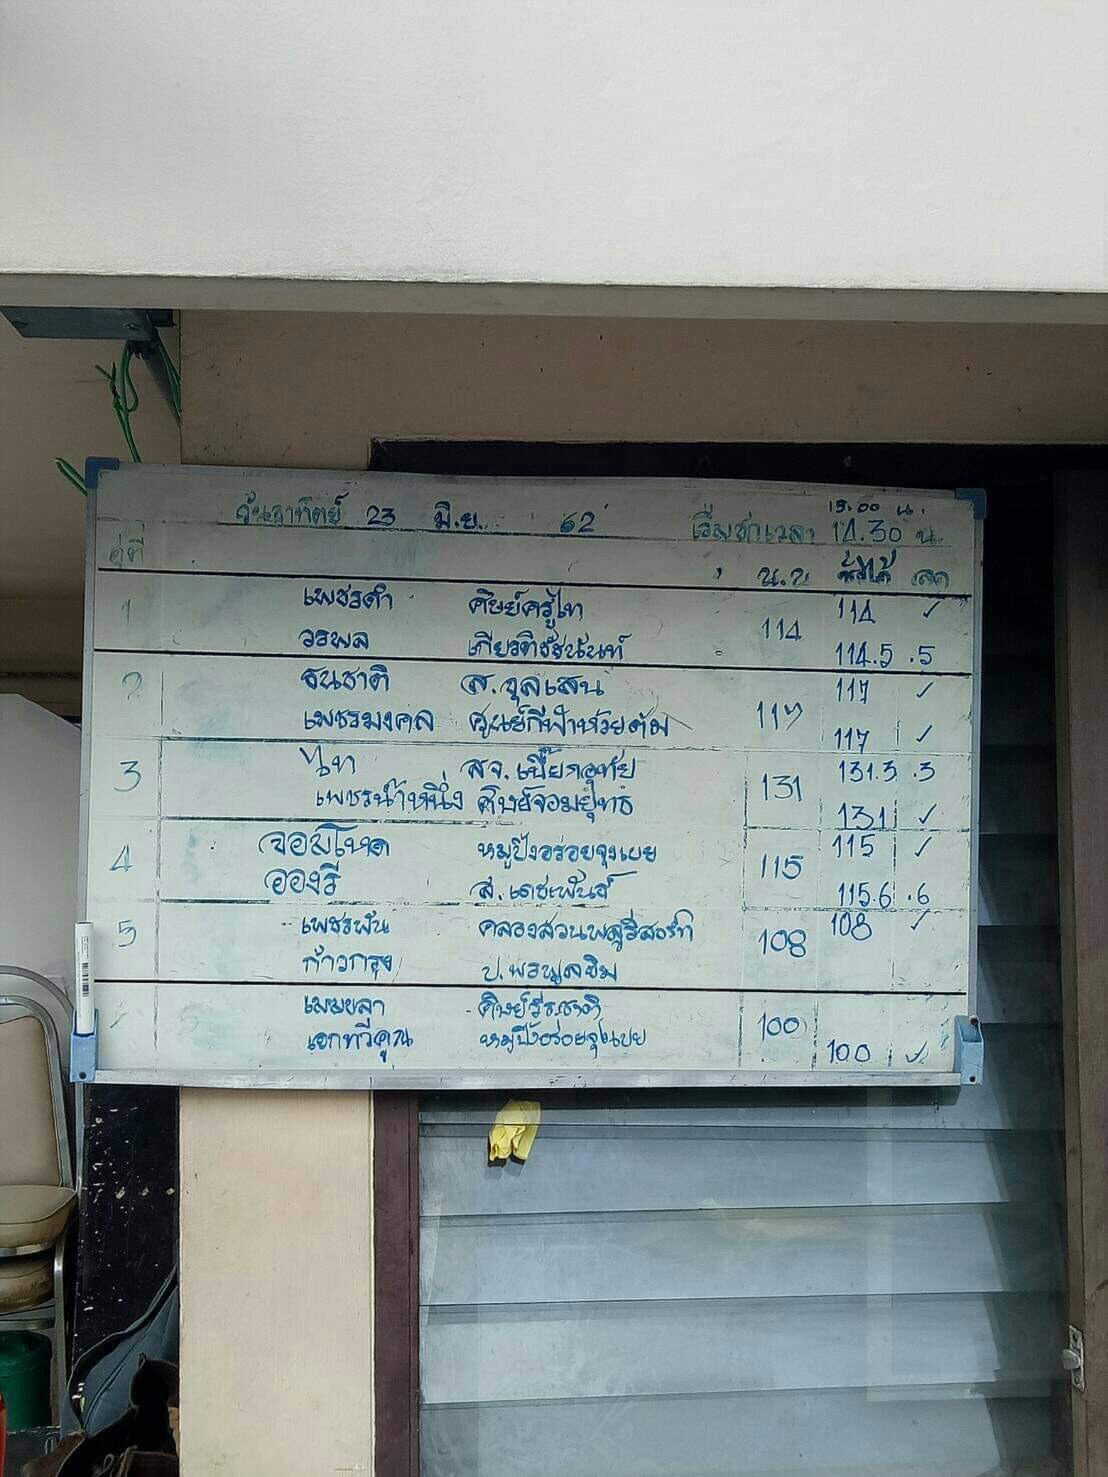 15.00 น.
วันอาทิตย์ 23 มิ.ย. 62 เริ่มชกเวลา 14.30 น.
คู่ที่ น.น ชั่งได้ ลด
1 เพชรดำ ศิษย์ครูไก่ 114 114 ✓
วรพล เกียรติชัชนันท์ 114.5 .5
2 ธนชาติ ส.จุลเสน 117 117 ✓
เพชรมงคล ศูนย์กีฬาห้วยต้ม 117 ✓
3 ไท สจ.เปี๊ยกอุทัย 131 131.3 .3
เพชรน้ำหนึ่ง ศิษย์จอมยุทธ 131 ✓
4 จอมโหด หมูปิ้งอร่อยจุงเบย 115 115 ✓
อองรี ส.เดชะพันธ์ 115.6 .6
5 เพชรพัน คลองสวนพลูรีสอร์ท 108 108 ✓
ก้าวกรุง
เมฆลา 100
เอกทวีคูณ หมูปิ้งอร่อยจุงเบย 100 ✓